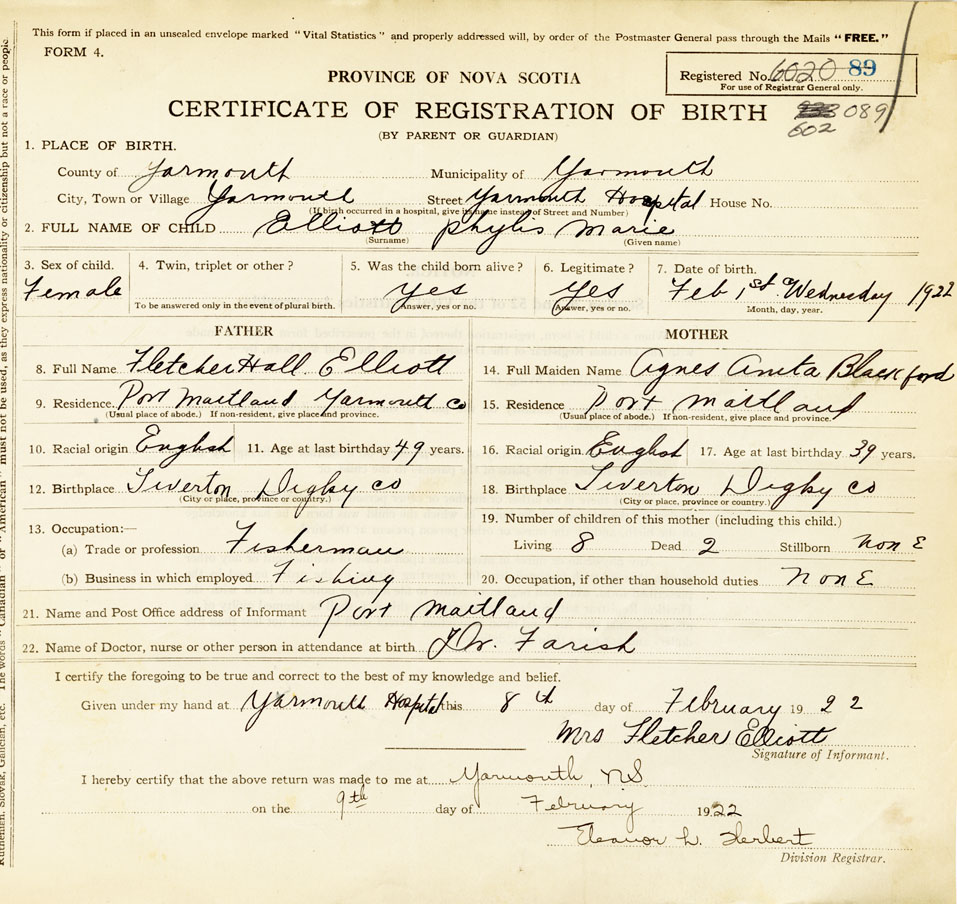 This form if placed in an unsealed envelope marked "Vital Statistics" and properly addressed will, by order of the Postmaster General pass through the Mails "FREE."
FORM 4.
PROVINCE OF NOVA SCOTIA
Registered No. 6020 89
For use of Registrar General only.
CERTIFICATE OF REGISTRATION OF BIRTH
089
602
(BY PARENT OR GUARDIAN)
1. PLACE OF BIRTH.
County of Yarmouth Municipality of Yarmouth
City, Town or Village Yarmouth Street Yarmouth Hospital House No.
(If birth occurred in a hospital, give its name instead of Street and Number)
2. FULL NAME OF CHILD Elliott Phylis Marie
(Surname) (Given name)
3. Sex of child. 4. Twin, triplet or other? 5. Was the child born alive? 6. Legitimate? 7. Date of birth.
Female yes yes Feb 1st Wednesday 1922
To be answered only in the event of plural birth. Answer, yes or no. Answer, yes or no. Month, day, year.
FATHER MOTHER
8. Full Name Fletcher Hall Elliott 14. Full Maiden Name Agnes Anita Blackford
9. Residence. Port Maitland Yarmouth Co 15. Residence Port Maitland
(Usual place of abode.) If non-resident, give place and province. (Usual place of abode.) If non-resident, give place and province.
10. Racial origin English 11. Age at last birthday 49 years. 16. Racial origin English 17. Age at last birthday 39 years.
12. Birthplace Tiverton Digby co 18. Birthplace Tiverton Digby co
(City or place, province or country.) (City or place, province or country.)
13. Occupation:— 19. Number of children of this mother (including this child.)
(a) Trade or profession Fisherman Living 8 Dead 2 Stillborn NonE
(b) Business in which employed Fishing 20. Occupation, if other than household duties NonE
21. Name and Post Office address of Informant Port Maitland
22. Name of Doctor, nurse or other person in attendance at birth Dr. Farish
I certify the foregoing to be true and correct to the best of my knowledge and belief.
Given under my hand at Yarmouth Hospital this 8th day of February 1922
Mrs Fletcher Elliott
Signature of Informant.
I hereby certify that the above return was made to me at Yarmouth, N.S.
on the 9th day of February 1922
Eleanor L. Herbert
Division Registrar.
Ruthenian, Slovak, Galician, etc. The words "Canadian" or "American" must not be used, as they express nationality or citizenship but not a race or people.